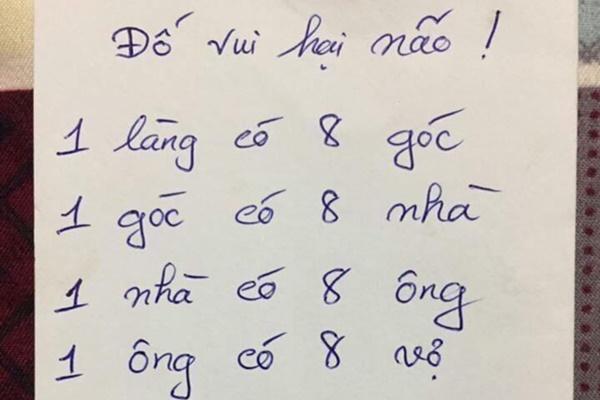 Đố vui hại não !
1 làng có 8 góc
1 góc có 8 nhà
1 nhà có 8 ông
1 ông có 8 vợ